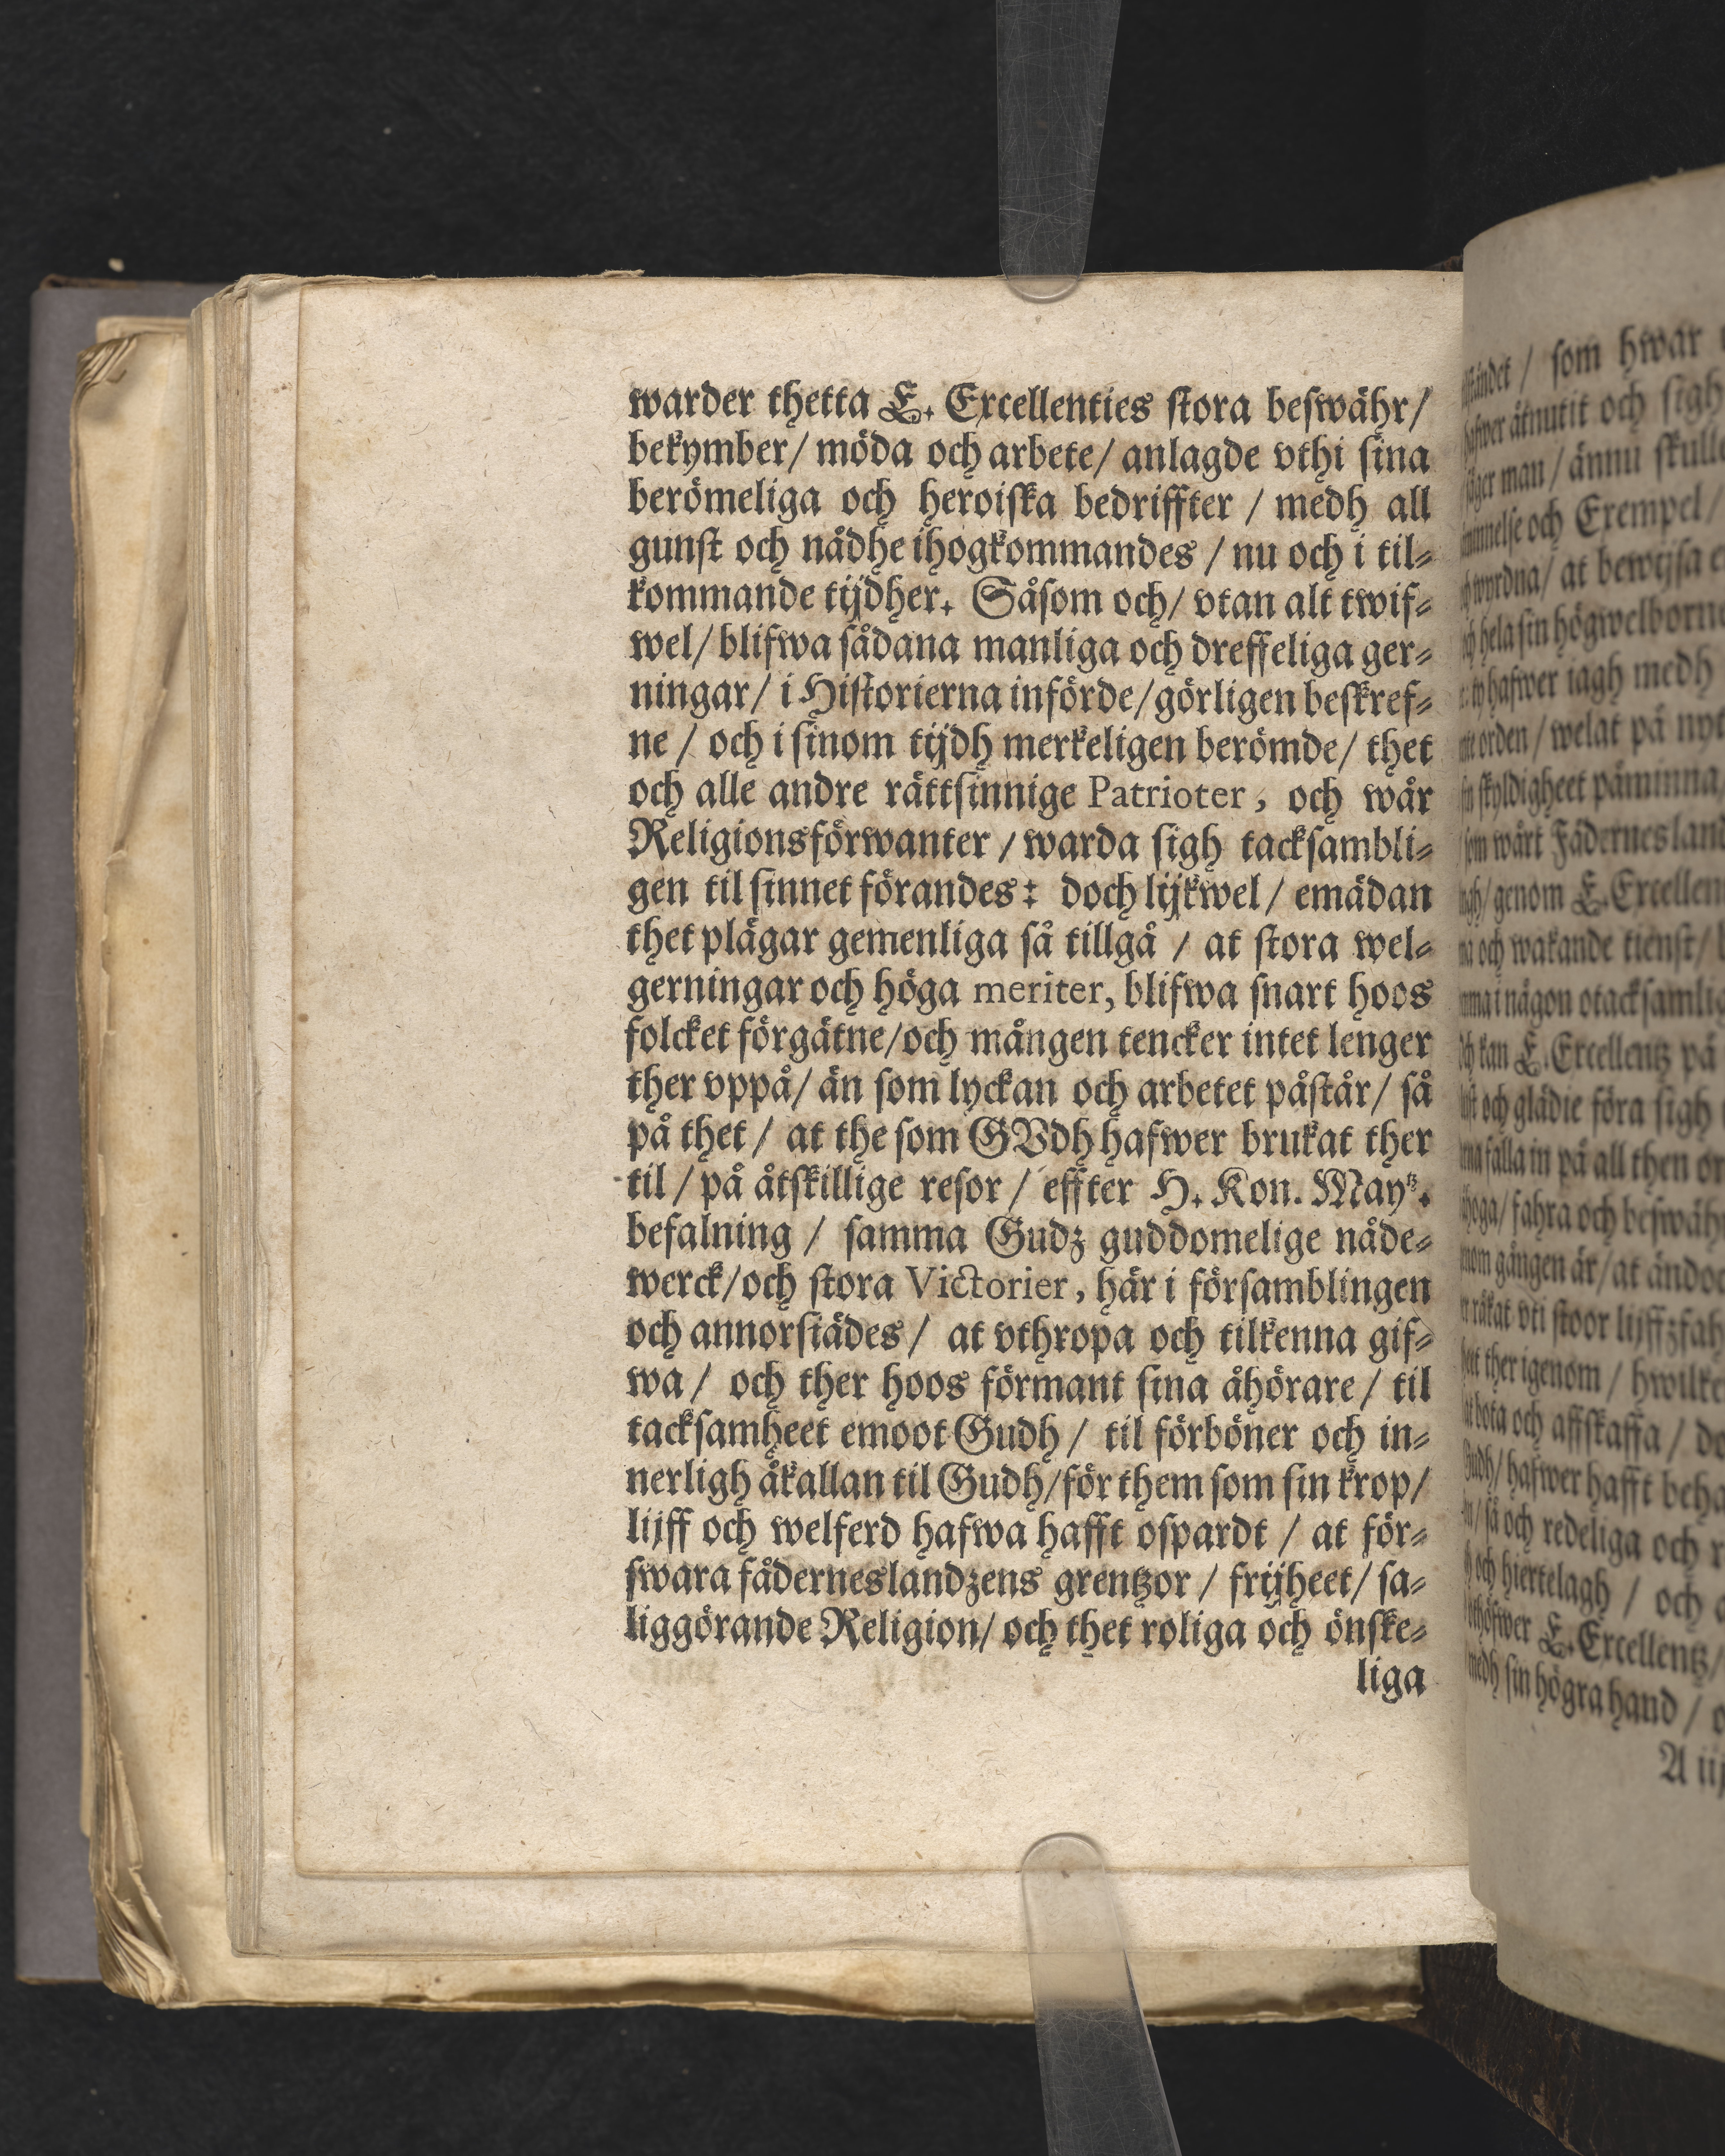 warder thetta E. Excellenties stora beswähr/
bekymber/ möda och arbete/ anlagde vthi sina
berömeliga och heroiska bedriffter / medh all
gunst och nådhe ihogkommandes / nu och i til-
kommande tijdher. Såsom och/ vtan alt twif-
wel/ blifwa sådana manliga och dreffeliga ger-
ningar/ i Historierna införde/ görligen beskref-
ne / och i sinom tijdh merkeligen berömde/ thet
och alle andre rättsinnige Patrioter, och wår
Religionsförwanter / warda sigh tacksambli-
gen til sinnet förandes: doch lijkwel/ emädan
thet plägar gemenliga så tillgå / at stora wel-
gerningar och höga meriter, blifwa snart hoos
folcket förgätne/och mången tencker intet lenger
ther vppå/ än som lyckan och arbetet påstår/ så
på thet / at the som GVdh hafwer brukat ther
til / på åtskillige resor / effter H. Kon. Maytz.
befalning / samma Gudz guddomelige nåde-
werck/och stora Victorier, här i församblingen
och annorstädes/ at vthropa och tilkenna gif-
wa / och ther hoos förmant sina åhörare / til
tacksamheet emoot Gudh / til förböner och in-
nerligh åkallan til Gudh/för them som sin krop/
lijff och welferd hafwa hafft ospardt / at för-
swara fäderneslandzens grentzor / frijheet/ sa-
liggörande Religion/ och thet roliga och önske-
liga
/ som hwar
åtnutit och sigh
man / ännu skulle
och Exempel /
/ at bewijsa
hela sin högwelborne
hafwer iagh medh
orden / welat på nyt
skyldigheet påminna,
som wårt Fädernesland
/ genom E. Excellen
och wakande tienst/
i någon otacksamlig
kan E. Excellentz på
och glädie föra sigh
falla in på all then
/ fahra och beswähr
gången är/ at ändoc
råkat vti stoor lijffzfah
ther igenom / hwilke
bota och affskaffa / do
/ hafwer hafft beha
/ så och redeliga och
och hiertelagh / och
E. Excellentz/
medh sin högra hand /
A iij